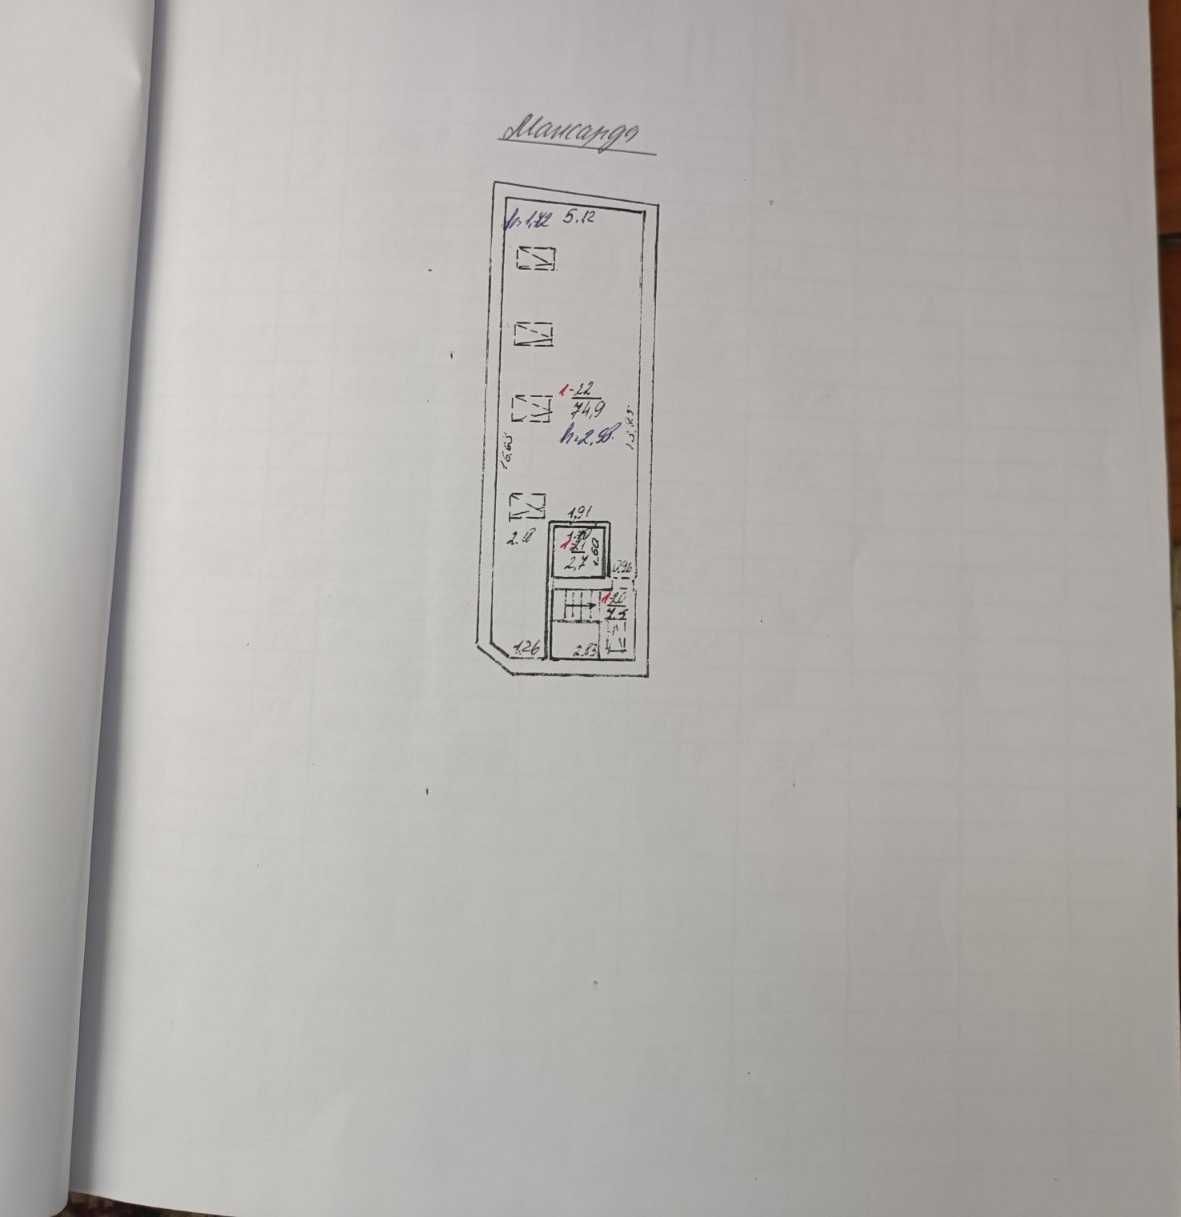 Мансарда
h=1,72 5.12
1-22
74,9
h=2,98
16,65
13,85
1,91
2.10
1-21
2,7
1.60
0,96
1-20
7,5
1,26
2,83